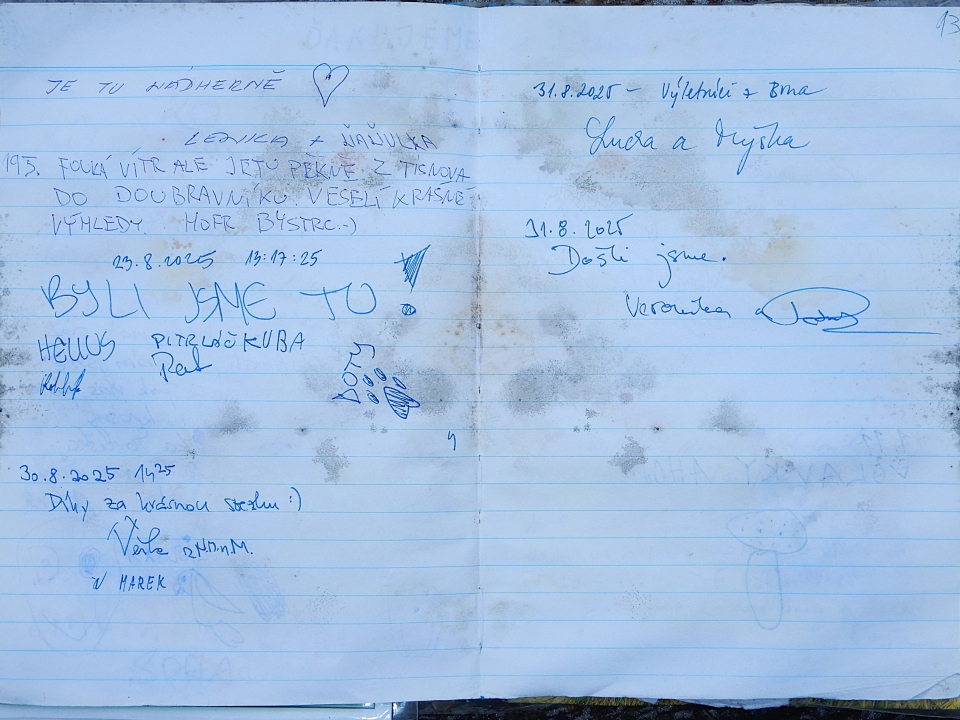 JE TU NÁDHERNĚ
LENKA + ŇAŇULKA
19.5. FOUKÁ VÍTR ALE JE TU PĚKNĚ. Z TIŠNOVA
DO DOUBRAVNÍKU. VESELÍ KRÁSNÉ
VÝHLEDY. HOFR BYSTRC:-)
23.8.2025 13:17:25
BYLI JSME TU !
HELIUS PITRLÁČ KUBA
DOTY
30.8.2025 14 25
Díky za krásnou stezku :)
Verča z N.M.n.M.
MAREK
13
31.8.2025 - Výletníci z Brna
Lucka a Myška
31.8.2025
Došli jsme.
Veronika a